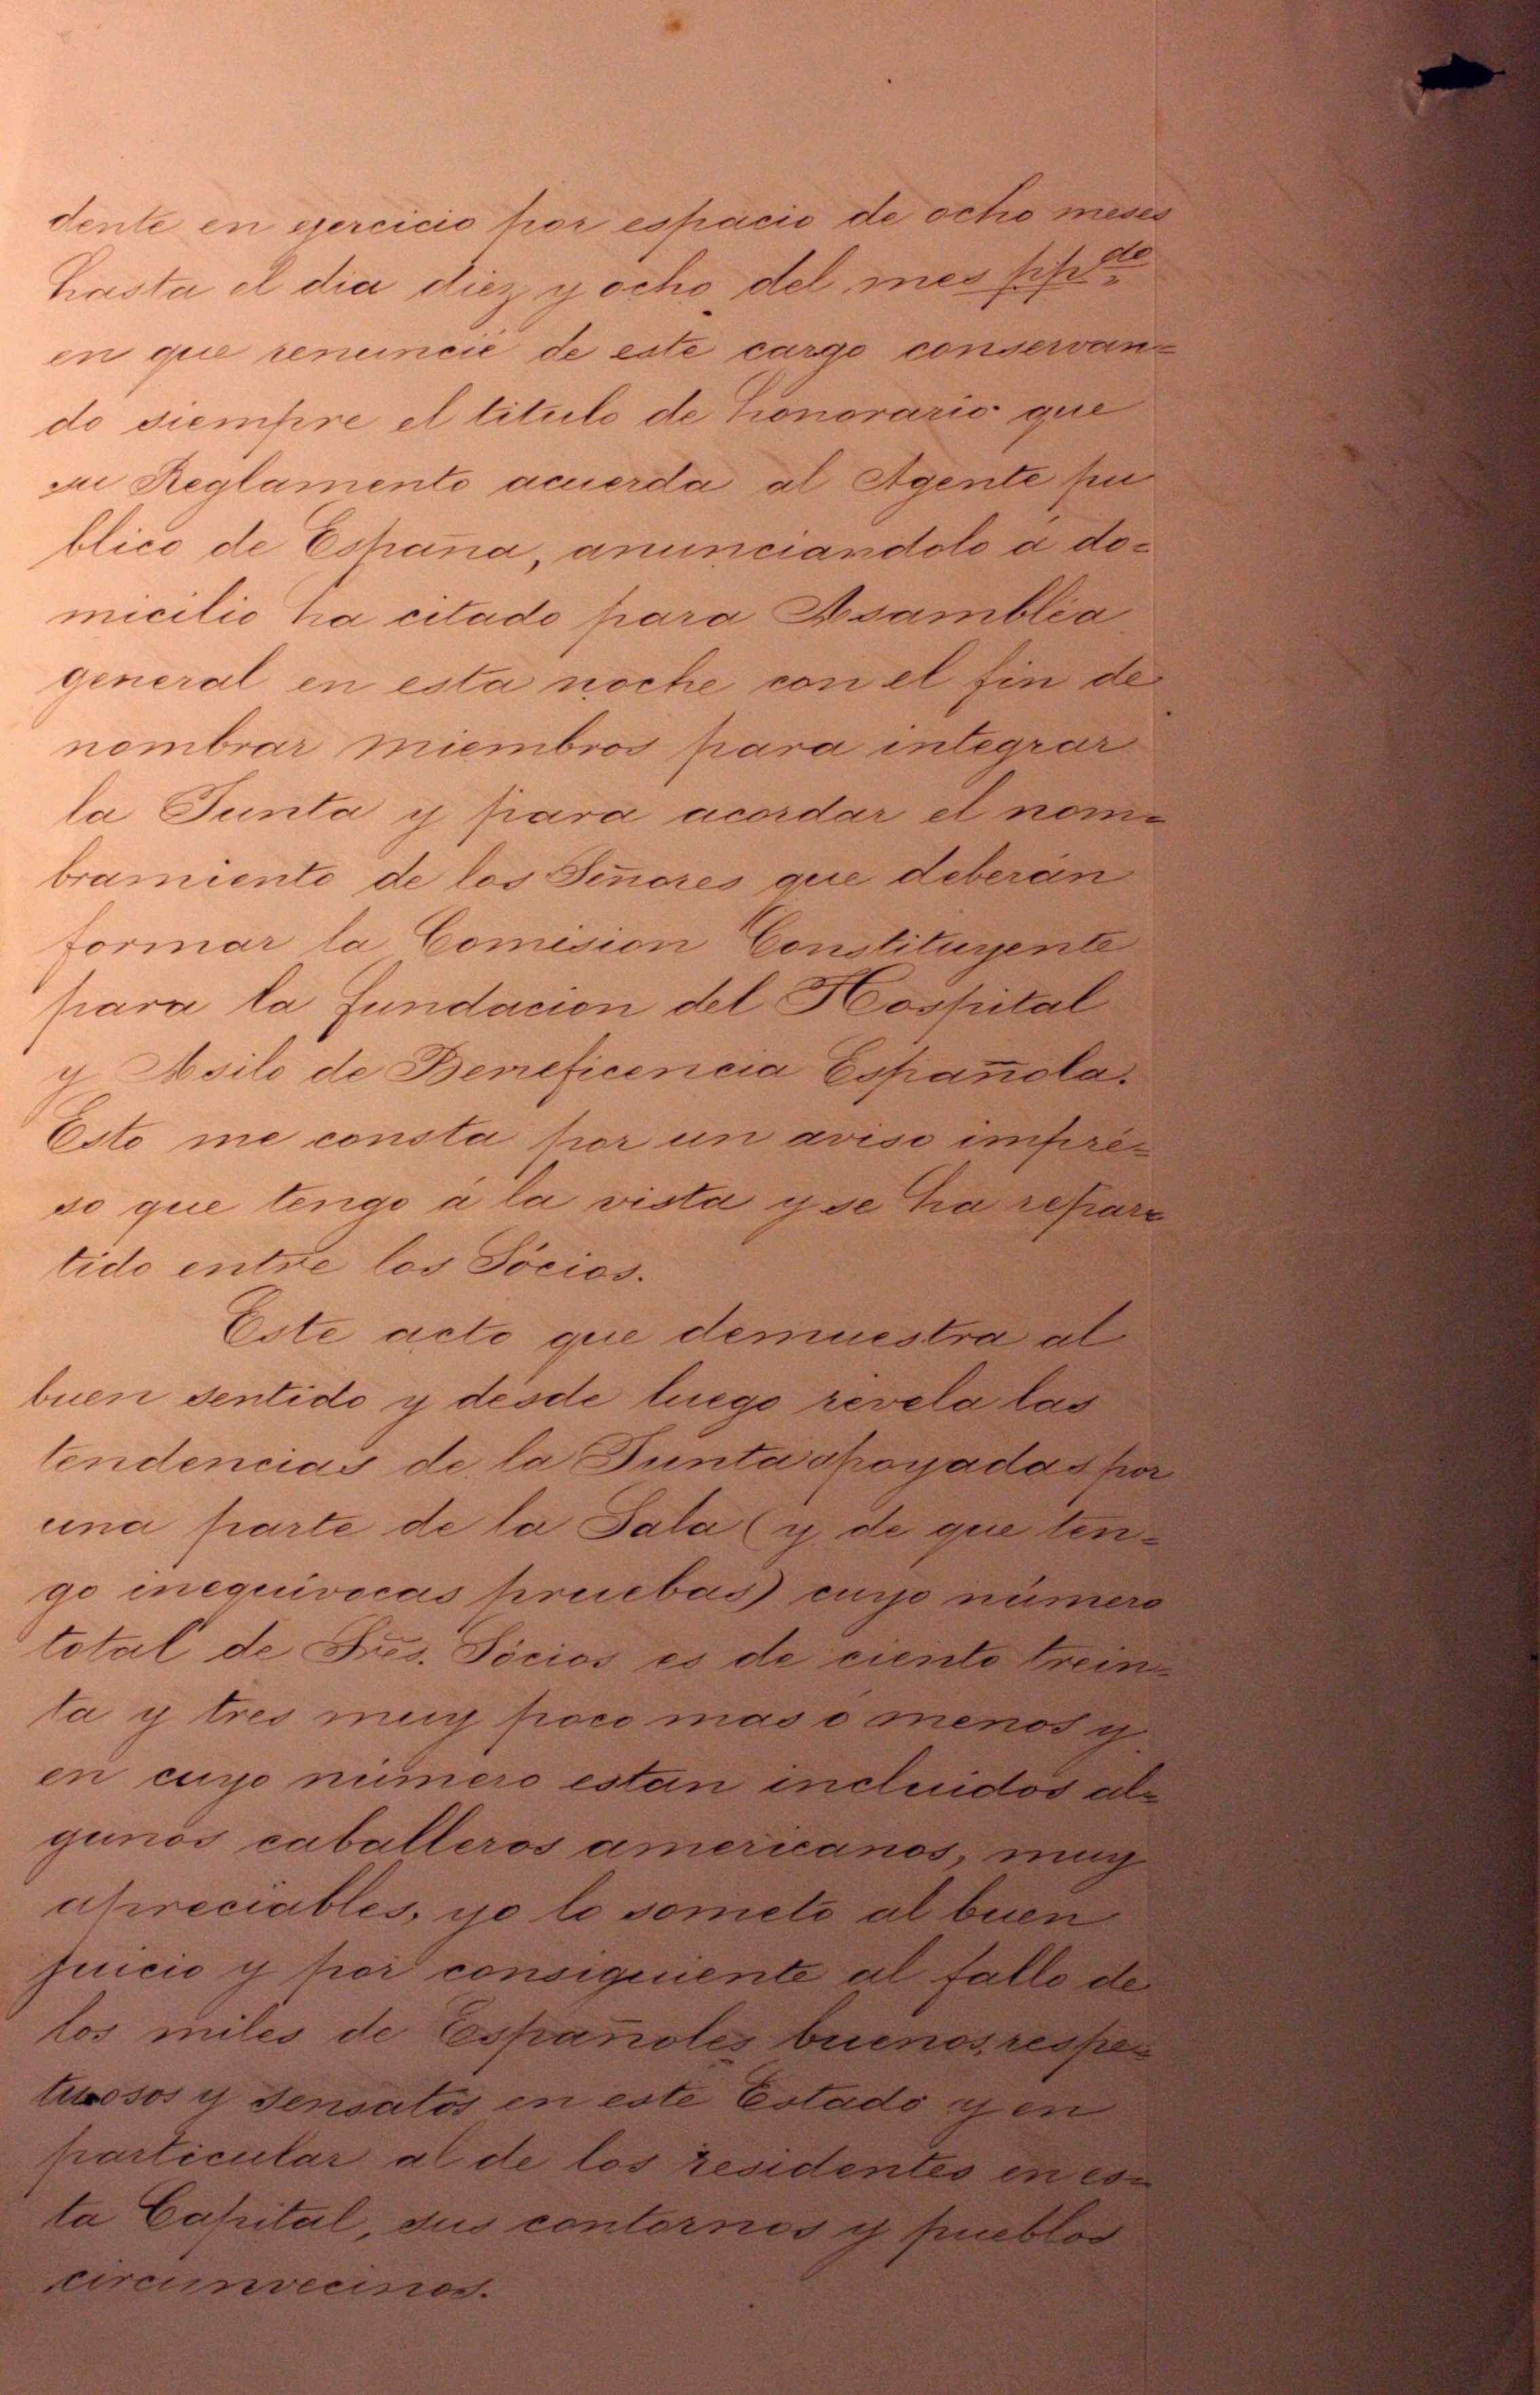 dente en ejercicio por espacio de ocho meses
hasta el dia diez y ocho del mes ppdo
en que renuncié de este cargo conservan=
do siempre el titulo de honorario que
su Reglamento acuerda al Agente pu
blico de España, anunciandolo á do=
micilio ha citado para Asambléa
general en esta noche con el fin de
nombrar miembros para integrar
la Junta y para acordar el nom=
bramiento de los Señores que deberán
formar la Comision Constituyente
para la fundacion del Hospital
y Asilo de Beneficencia Española.
Esto me consta por un aviso impré=
so que tengo á la vista y se ha repar=
tido entre los Sócios.
Este acto que demuestra al
buen sentido y desde luego revela las
tendencias de la Junta apoyadas por
una parte de la Sala (y de que ten=
go inequívocas pruebas) cuyo número
total de Sres. Sócios es de ciento trein=
ta y tres muy poco mas ó menos y
en cuyo número estan incluidos al=
gunos caballeros americanos, muy
apreciables, yo lo someto al buen
juicio y por consiguiente al fallo de
los miles de Españoles buenos, respe=
tuosos y sensatos en este Estado y en
particular al de los residentes en es=
ta Capital, sus contornos y pueblos
circunvecinos.